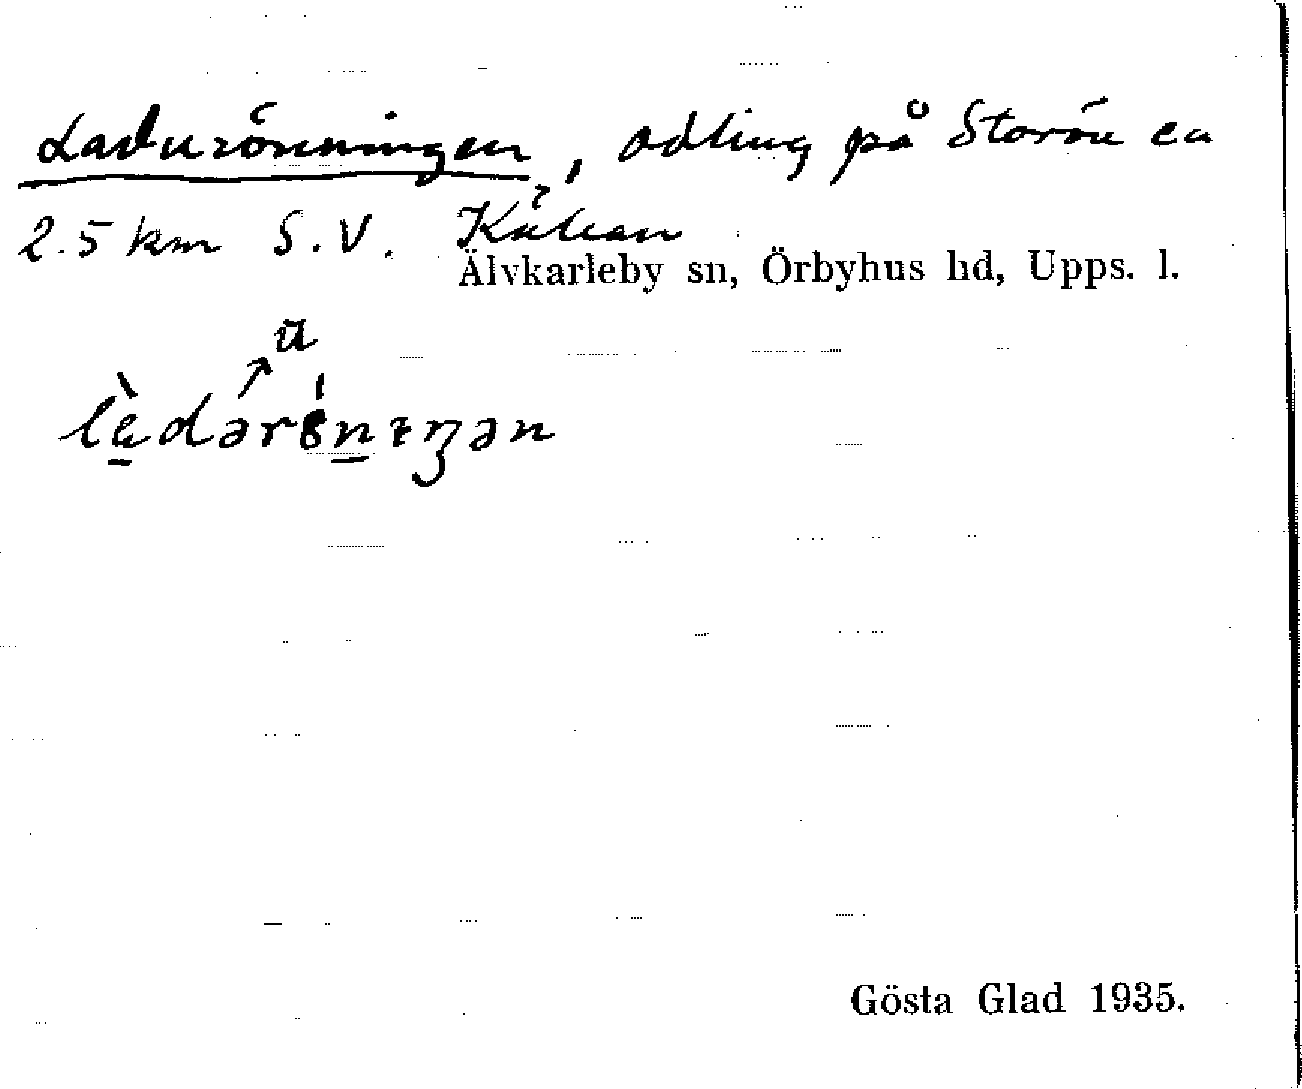 Laduröningen, odling på Storön ca
2.5 km S.V. Kyrkan
Älvkarleby sn, Örbyhus hd, Upps. l.
Gösta Glad 1935.